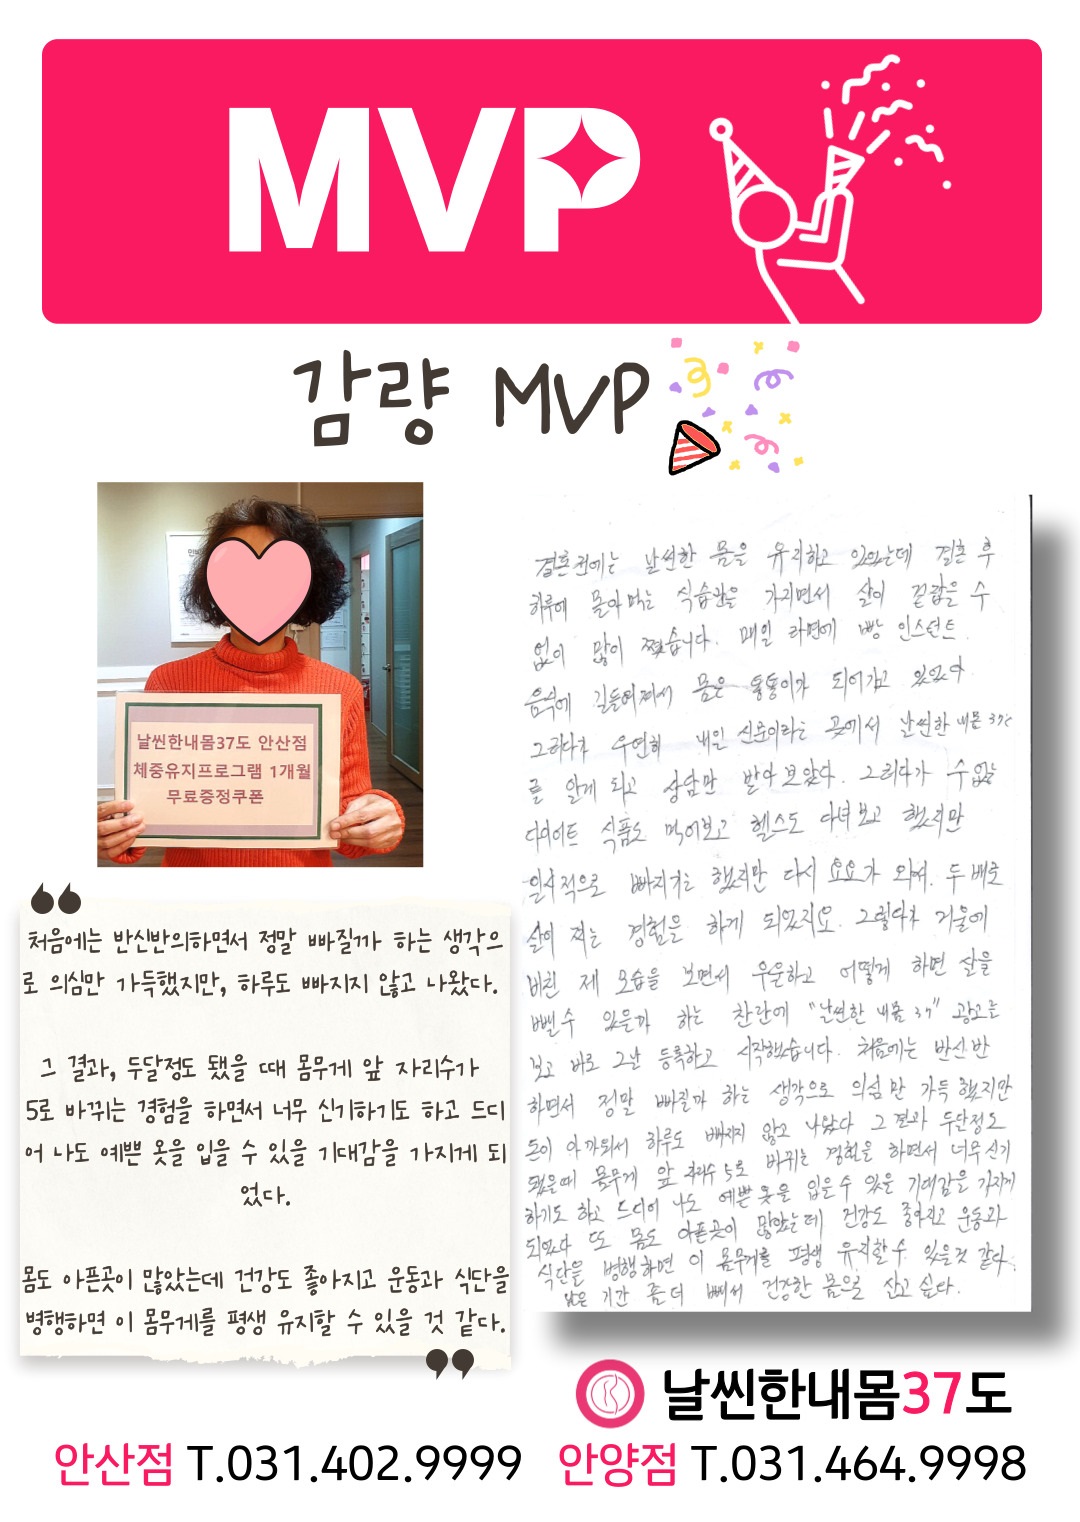 MVP
감량 MVP
날씬한내몸37도 안산점
체중유지프로그램 1개월
무료증정쿠폰
처음에는 반신반의하면서 정말 빠질까 하는 생각으
로 의심만 가득했지만, 하루도 빠지지 않고 나왔다.
그 결과, 두달정도 됐을 때 몸무게 앞 자리수가
5로 바뀌는 경험을 하면서 너무 신기하기도 하고 드디
어 나도 예쁜 옷을 입을 수 있을 기대감을 가지게 되
었다.
몸도 아픈곳이 많았는데 건강도 좋아지고 운동과 식단을
병행하면 이 몸무게를 평생 유지할 수 있을 것 같다.
결혼전에는 날씬한 몸을 유지하고 있었는데 결혼 후
하루에 몰아먹는 식습관을 가지면서 살이 걷잡을 수
없이 많이 쪘습니다. 매일 라면에 빵 인스턴트
음식에 길들여져서 몸은 뚱뚱이가 되어가고 있었다
그러다가 우연히 내일 신문이라는 곳에서 날씬한 내몸 37℃
를 알게 되고 상담만 받아 보았다. 그러다가 수없는
다이어트 식품도 먹어보고 헬스도 다녀보고 했지만
일시적으로 빠지기는 했지만 다시 요요가 와서. 두배로
살이 찌는 경험을 하게 되었지요. 그렇다가 거울에
비친 제 모습을 보면서 우울하고 어떻게 하면 살을
뺄수 있을까 하는 찬란에 "날씬한 내몸 37" 광고를
보고 바로 그날 등록하고 시작했습니다. 처음에는 반신반
하면서 정말 빠질까 하는 생각으로 의심만 가득했지만
돈이 아까워서 하루도 빠지지 않고 나왔다 그 결과 두달정도
됐을때 몸무게 앞 자리수 5로 바뀌는 경험을 하면서 너무 신기
하기도 하고 드디어 나도 예쁜 옷을 입을수 있을 기대감을 가지게
되었다 또 몸도 아픈곳이 많았는데 건강도 좋아지고 운동과
식단을 병행하면 이 몸무게를 평생 유지할수 있을것 같다.
남은 기간 좀더 빼서 건강한 몸으로 살고 싶다.
날씬한내몸37도
안산점 T.031.402.9999 안양점 T.031.464.9998